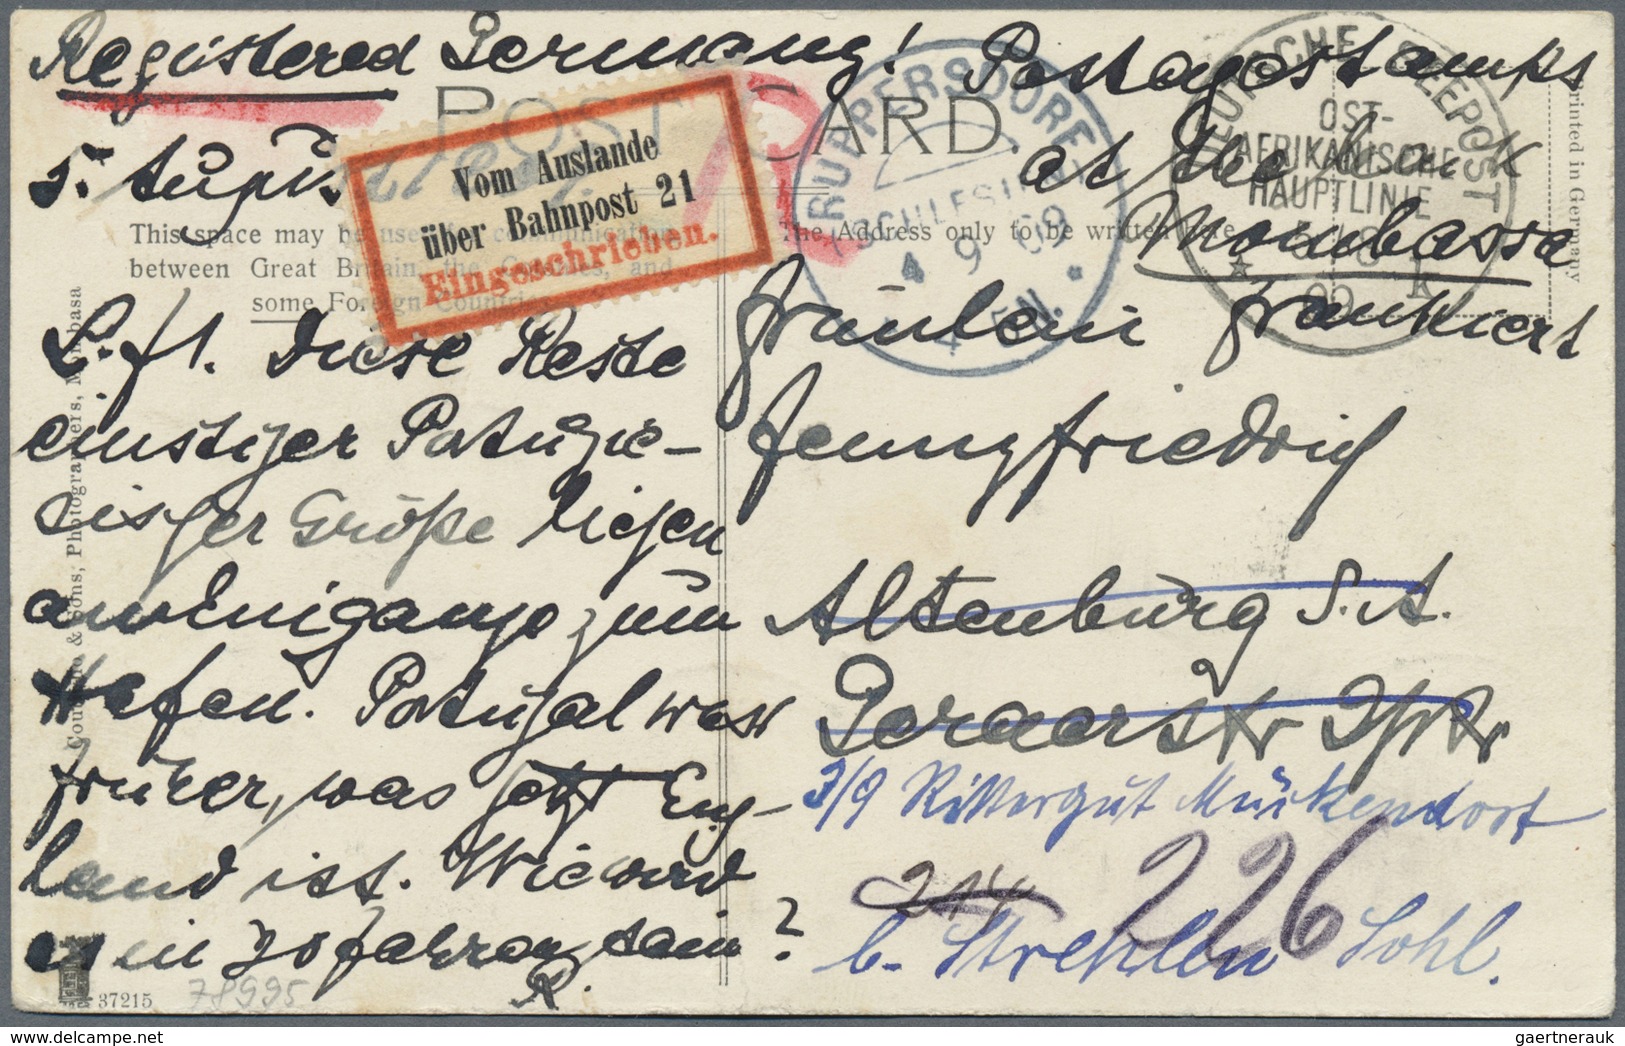 Registered Germany! Postagestamps
at the back
Mombassa
frankiert
POST CARD.
Vom Auslande
über Bahnpost 21
Eingeschrieben.
RUPPERSDORF
(SCHLESIEN)
4 9 09
4-5 N.
DEUTSCHE SEEPOST
OST-
AFRIKANISCHE
HAUPTLINIE
09 k
Printed in Germany
This space may be used for communication
between Great Britain, the Colonies, and
some Foreign Countries.
The Address only to be written here.
L. Frl. Diese Reste
einstiger Portugie-
sischer Größe liegen
am Eingange zum
Hafen. Portugal war
früher, was jetzt Eng-
land ist. Wie wird
es in 20 Jahren sein?
R.
Fräulein
Jenny Friedrich
Altenburg S.A.
3/9 Rittergut Mückendorf
214 226
b. Strehlen Schl.
Coutinho & Sons, Photographers, Mombasa
37215
78995
gaertnerauk www.delcampe.net